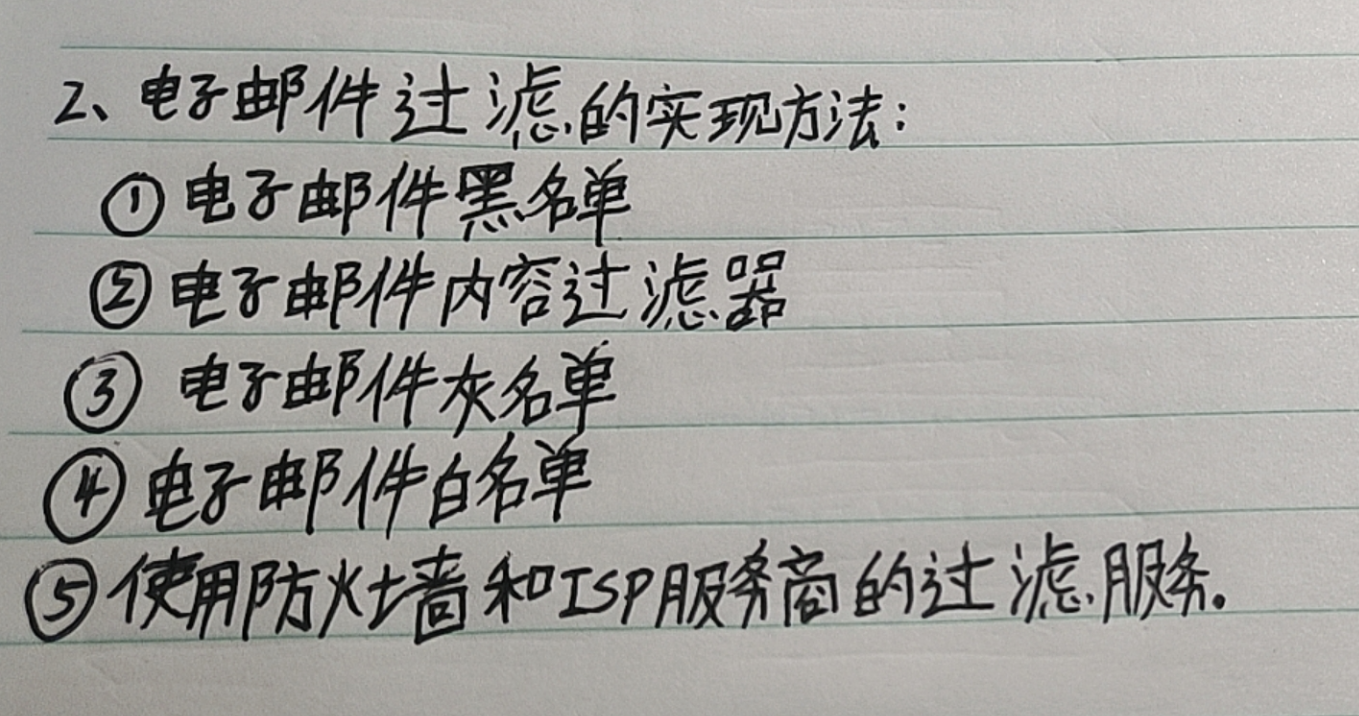 2、电子邮件过滤的实现方法:
①电子邮件黑名单
②电子邮件内容过滤器
③电子邮件灰名单
④电子邮件白名单
⑤使用防火墙和ISP服务商的过滤服务。